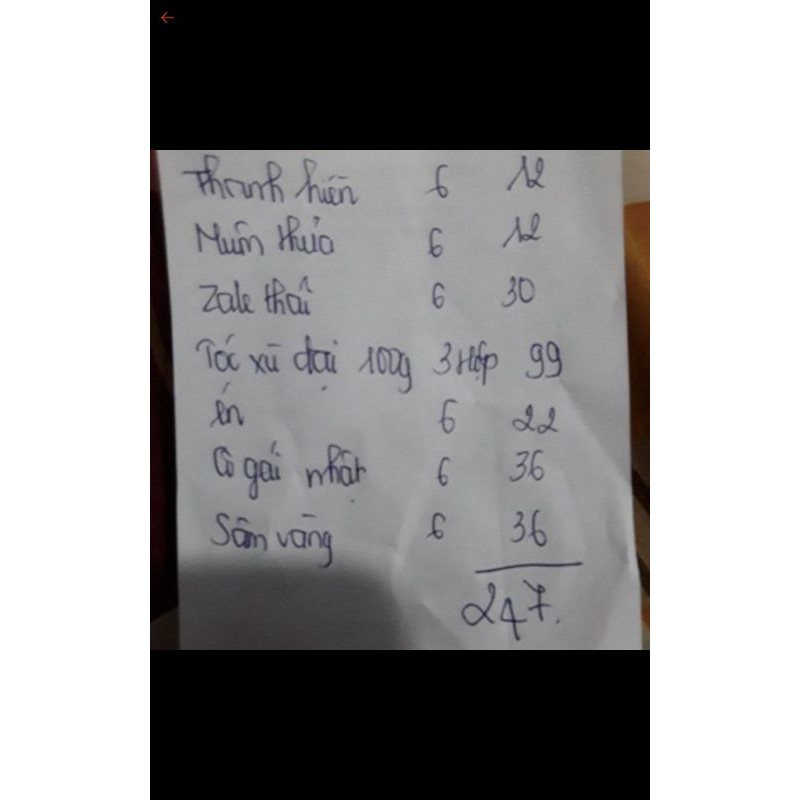 Thanh hiên 6 12
Mún thủa 6 12
Zale thái 6 30
Tóc xù đại 100g 3 Hộp 99
én 6 22
Cô gái nhật 6 36
Sâm vàng 6 36
247.